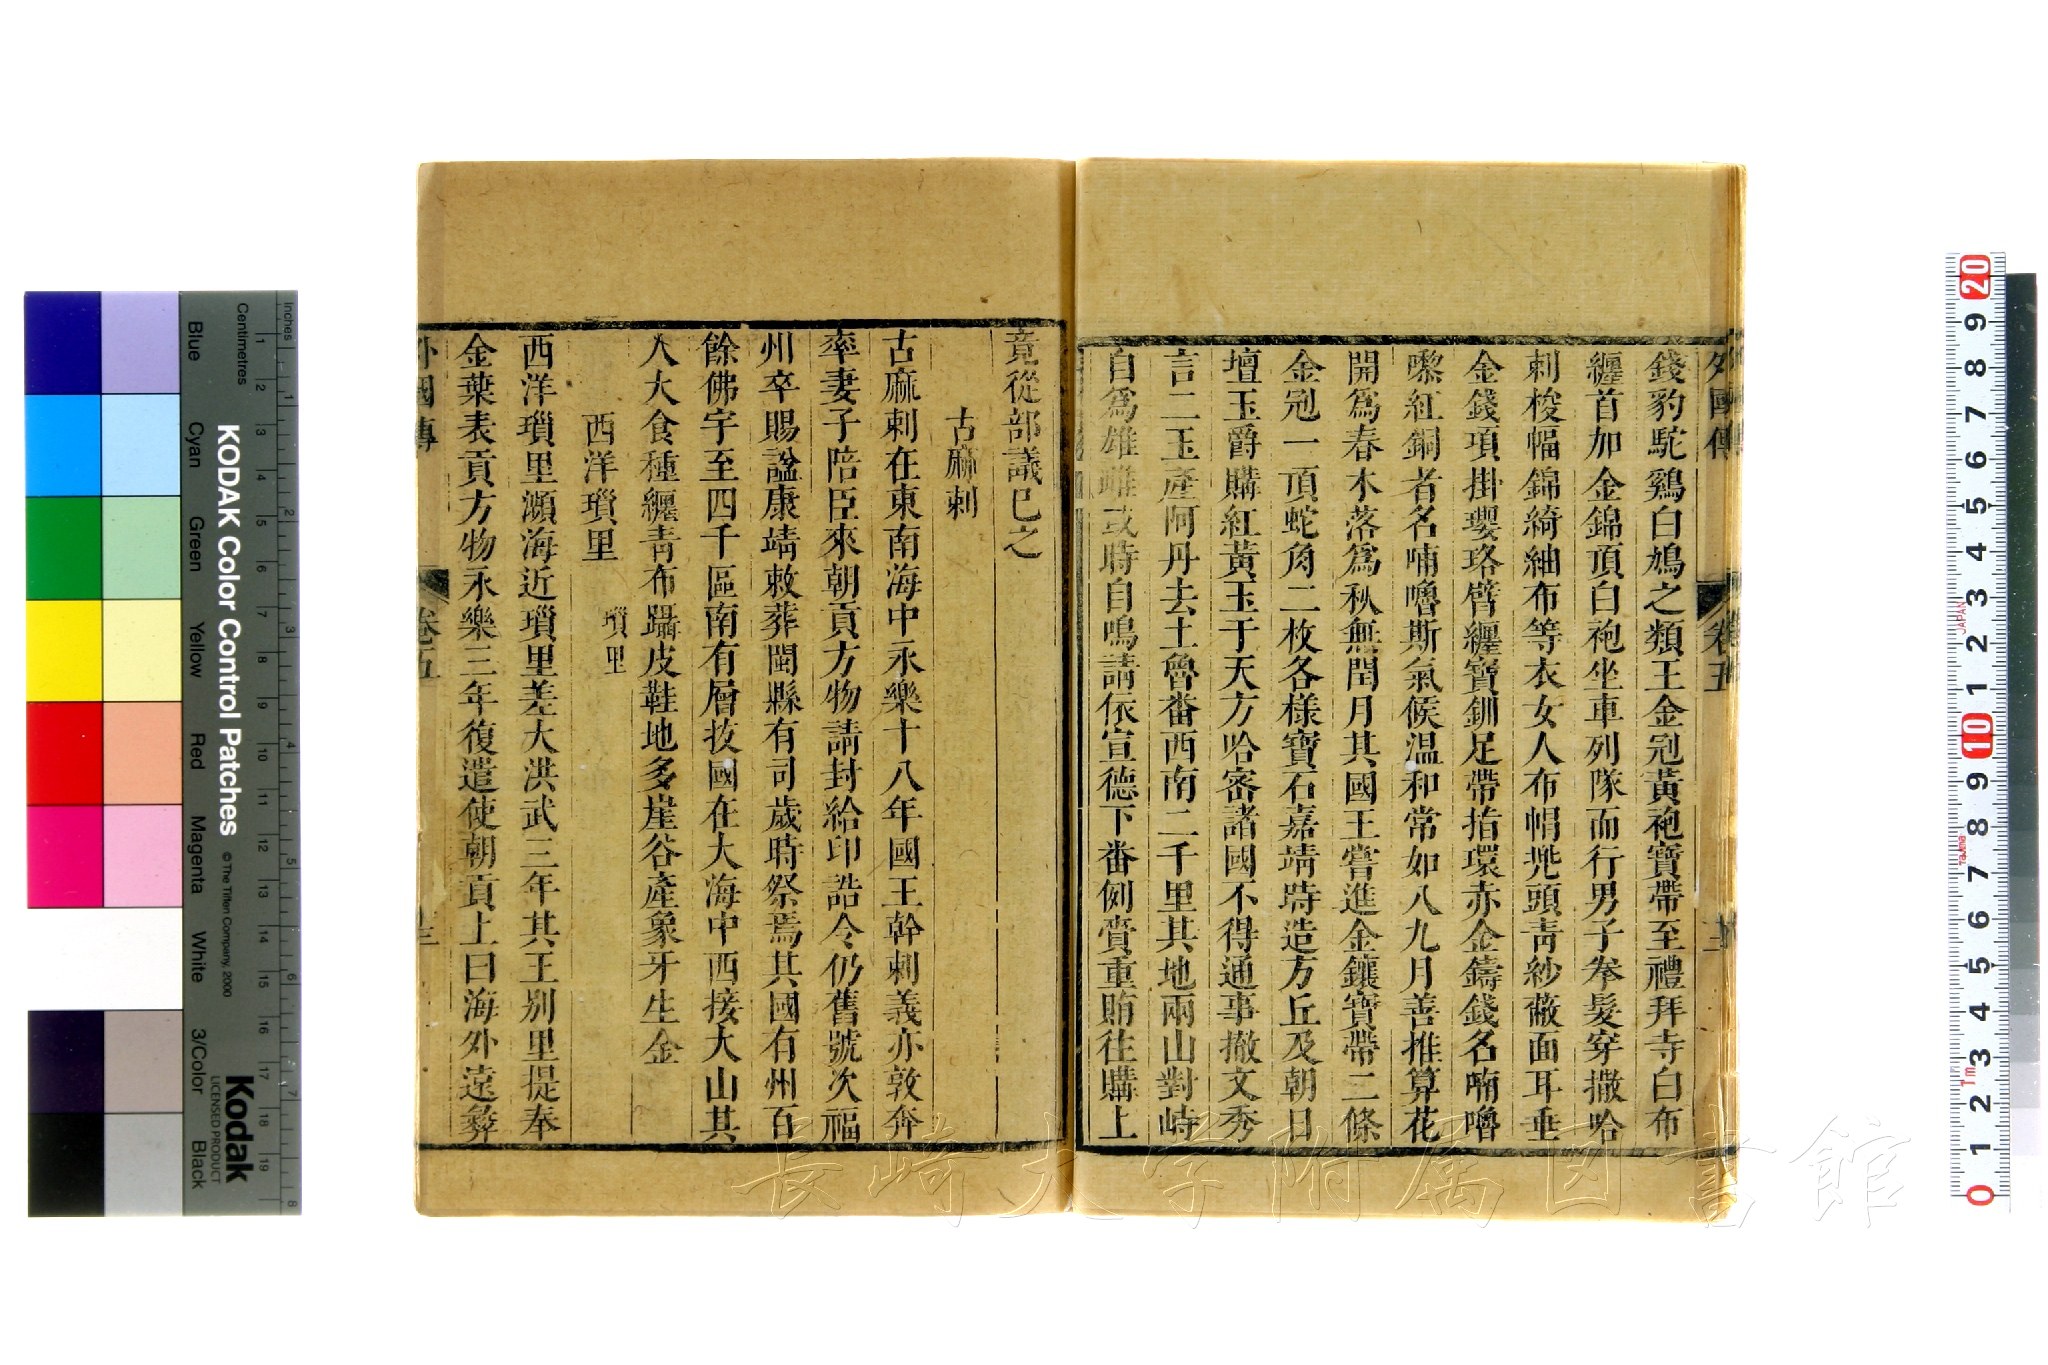 外國傳 卷五 十二
錢豹駝鷄白鳩之類王金冠黃袍寶帶至禮拜寺白布
纏首加金錦頂白袍坐車列隊而行男子拳髮穿撒哈
剌梭幅錦綺紬布等衣女人布帽兠頭靑紗蔽面耳垂
金錢項掛瓔珞臂纏寶釧足帶指環赤金鑄錢名喃嚕
嚟紅銅者名喃嚕斯氣候温和常如八九月善推算花
開爲春木落爲秋無閏月其國王嘗進金鑲寶帶二條
金冠一頂蛇角二枚各樣寶石嘉靖時造方丘及朝日
壇玉爵購紅黃玉于天方哈密諸國不得通事撒文秀
言二玉產阿丹去土魯番西南二千里其地兩山對峙
自爲雄雌或時自鳴請依宣德下番例賫重賄往購上
竟從部議已之
古麻剌
古麻剌在東南海中永樂十八年國王幹剌義亦敦奔
率妻子陪臣來朝貢方物請封給印誥令仍舊號次福
州卒賜諡康靖敕葬閩縣有司歲時祭焉其國有州百
餘佛宇至四千區南有層㧞國在大海中西接大山其
人大食種纏靑布躡皮鞋地多崖谷產象牙生金
西洋瑣里 瑣里
西洋瑣里瀕海近瑣里差大洪武三年其王别里提奉
金葉表貢方物永樂三年復遣使朝貢上曰海外遠彜
外國傳 卷五
KODAK Color Control Patches
© The Tiffen Company, 2000
Kodak
LICENSED PRODUCT
Inches
Centimetres
Blue
Cyan
Green
Yellow
Red
Magenta
White
3/Color
Black
長崎大学附属図書館
JAPAN